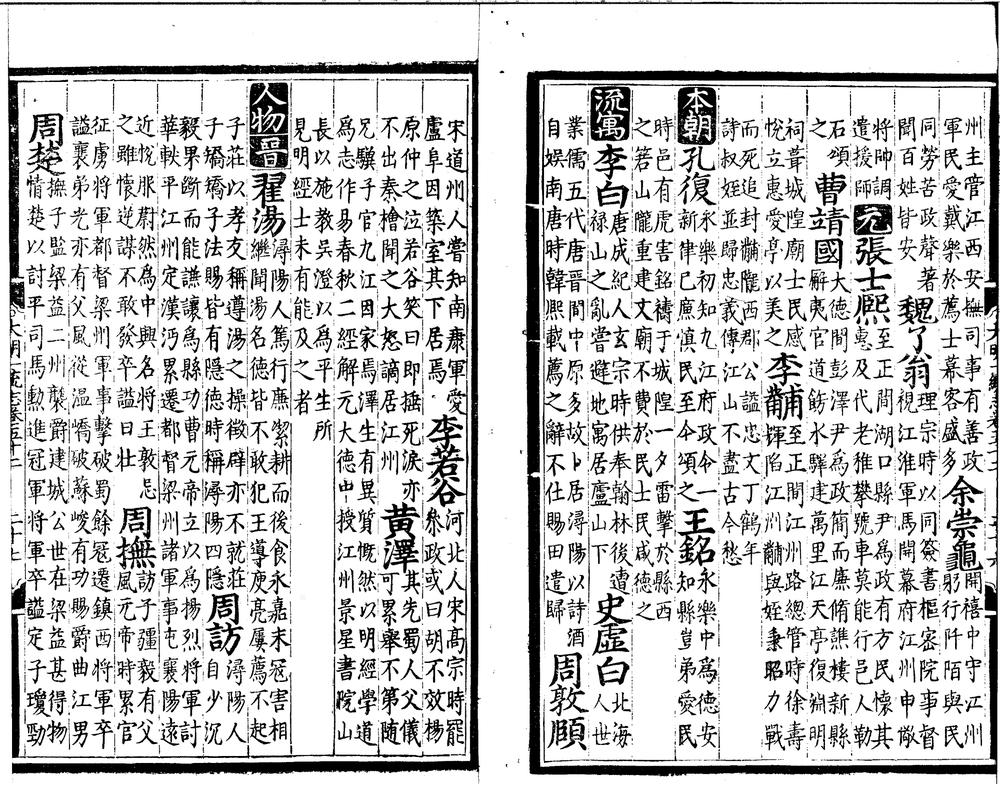 州主管江西安撫司事有善政
軍民愛戴樂於薦士幕客盛多
余崇龜
開禧中守江州
躬行阡陌與民
同勞苦政聲著
聞百姓皆安
魏了翁
理宗時以同簽書樞密院事督
視江淮軍馬開幕府江州申儆
將帥調
遣援師
元
張士熙
至正間湖口縣尹為政有方民懷其
惠及代老稚攀號車莫能行邑人勒
石頌
之
曹靖國
大德間彭澤尹為政簡而廉脩譙樓新縣
廨夷官道飭水驛建萬里江天亭復淵明
祠葺城隍廟士民感
悅立惠愛亭以美之
李黼
至正間江州路總管時徐壽
輝陷江州黼與姪秉昭力戰
而死追封隴西郡公謚忠文丁鶴年
詩叔姪並歸忠義傳江山不盡古今愁
本朝
孔復
永樂初知九江府政令一
新律己廉慎民至今頌之
王銘
永樂中為德安
知縣豈弟愛民
時邑有虎害銘禱于城隍一夕雷擊於縣西
之箬山隴重建文廟不費於民士民咸德之
流寓
李白
唐成紀人玄宗時供奉翰林後遭
祿山之亂嘗避地寓居廬山下
史虛白
北海
人世
業儒五代唐晉間中原多故卜居潯陽以詩酒
自娛南唐時韓熙載薦之辭不仕賜田遣歸
周敦頤
宋道州人嘗知南康軍愛
廬阜因築室其下居焉
李若谷
河北人宋高宗時罷
參政或曰胡不效楊
原仲之泣若谷笑曰即插死淚亦
不出秦檜聞之大怒謫居江州
黃澤
其先蜀人父儀
可累舉不第隨
兄驥子官九江因家焉澤生有異質慨然以明經學道
為志作易春秋二經解元大德中授江州景星書院山
長以施教吳澄以為平生所
見明經士未有能及之者
人物
晉
翟湯
潯陽人篤行廉潔耕而後食永嘉末寇害相
繼聞湯名德皆不敢犯王導庾亮屢薦不起
子莊以孝友稱遵湯之操徵辟亦不就莊
子矯矯子法賜皆有隱德時稱潯陽四隱
周訪
潯陽人
自少沉
毅果斷而能謙讓為縣功曹元帝立以為揚烈將軍討
華軼平江州定漢沔累遷都督梁州諸軍事屯襄陽遠
近悅服蔚然為中興名將王敦忌
之雖懷逆謀不敢發卒謚曰壯
周撫
訪子彊毅有父
風元帝時累官
征虜將軍都督梁州軍事擊破蜀餘寇遷鎮西將軍卒
謚襄弟光亦有父風從溫嶠破蘇峻有功賜爵曲江男
周楚
撫子監梁益二州襲爵建城公世在梁益甚得物
情楚以討平司馬勳進冠軍將軍卒謚定子瓊勁